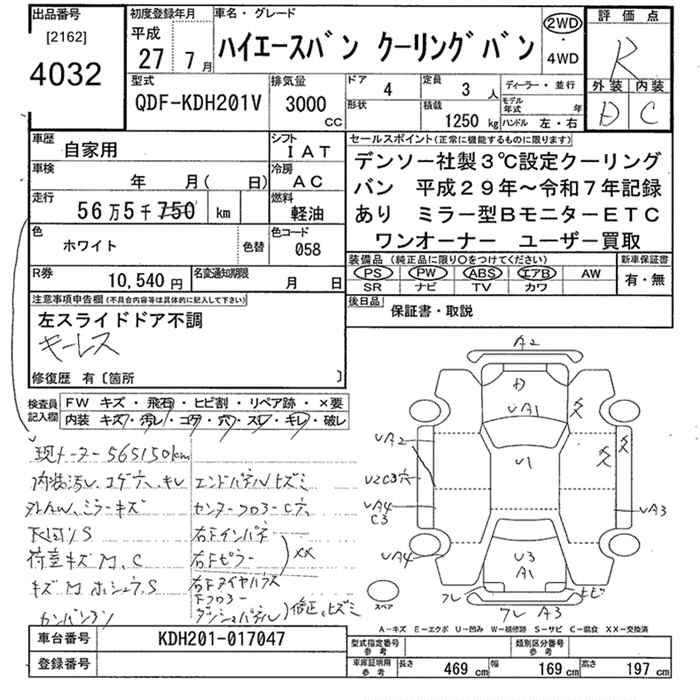 出品番号
[2162]
4032
初度登録年月
平成
27 年 7 月
車名・グレード
ハイエースバン クーリングバン
2WD
・
4WD
評価点
R
外装 内装
D C
型式
QDF-KDH201V
排気量
3000 CC
ドア
4
形状
定員
3 人
積載
1250 kg
ディーラー・並行
モデル年式 年
ハンドル 左・右
車歴
自家用
シフト
IAT
車検
年 月( 日)
冷房
AC
走行
56万5千750 km
燃料
軽油
色
ホワイト
色替
色コード
058
R券
10,540 円
名変通知期限
月 日
セールスポイント(正常に機能するものに限ります)
デンソー社製3℃設定クーリング
バン 平成29年~令和7年記録
あり ミラー型BモニターETC
ワンオーナー ユーザー買取
装備品(純正品に限り○をつけてください)
PS PW ABS エアB AW
SR ナビ TV カワ
新車保証書
有・無
後日品
保証書・取説
注意事項申告欄(不具合内容等は具体的に記入して下さい)
左スライドドア不調
キーレス
修復歴 有〔箇所 〕
検査員記入欄
FW キズ・飛石・ヒビ割・リペア跡・×要
内装 キズ・汚レ・コゲ・穴・スレ・キレ・破レ
現メーター565150km
内装汚レ、コゲ穴、キレ
エンドパネルヒズミ
ミラーキズ
センターフロアーC穴
下回リS
右Fインパネ
荷室キズM、C
右Fピラー
XX
キズM ホシュウS
右Fタイヤハウス
下フロアー
ダッシュパネル
修正、ヒズミ
カンバンコン
A2
A
UA1
U1
UA2
U2C3穴
UA4
C3
UA4
UA3
U3
A1
フレ
ヒビ
フレ A3
スペア
A-キズ E-エクボ U-凹み W-補修跡 S-サビ C-腐食 XX-交換済
車台番号
KDH201-017047
登録番号
型式指定番号
参考
類別区分番号
参考
車庫証明用
参考
長さ 469 cm 幅 169 cm 高さ 197 cm